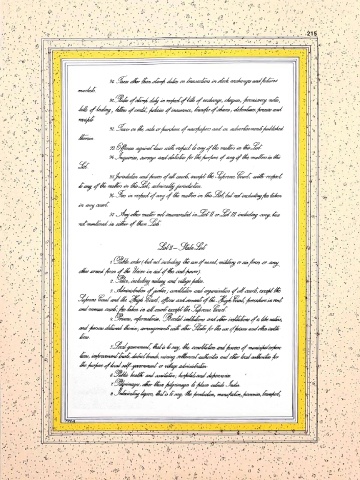 215
90. Taxes other than stamp duties on transactions in stock exchanges and futures
markets.
91. Rates of stamp duty in respect of bills of exchange, cheques, promissory notes,
bills of lading, letters of credit, policies of insurance, transfer of shares, debentures, proxies and
receipts.
92. Taxes on the sale or purchase of newspapers and on advertisements published
therein.
93. Offences against laws with respect to any of the matters in this List.
94. Inquiries, surveys and statistics for the purpose of any of the matters in this
List.
95. Jurisdiction and powers of all courts, except the Supreme Court, with respect
to any of the matters in this List; admiralty jurisdiction.
96. Fees in respect of any of the matters in this List, but not including fees taken
in any court.
97. Any other matter not enumerated in List II or List III including any tax
not mentioned in either of those Lists.
List II — State List
1. Public order (but not including the use of naval, military or air forces or any
other armed forces of the Union in aid of the civil power).
2. Police, including railway and village police.
3. Administration of justice; constitution and organisation of all courts, except the
Supreme Court and the High Court; officers and servants of the High Court; procedure in rent
and revenue courts; fees taken in all courts except the Supreme Court.
4. Prisons, reformatories, Borstal institutions and other institutions of a like nature,
and persons detained therein; arrangements with other States for the use of prisons and other institu-
tions.
5. Local government, that is to say, the constitution and powers of municipal corpora-
tions, improvement trusts, district boards, mining settlement authorities and other local authorities for
the purpose of local self-government or village administration.
6. Public health and sanitation; hospitals and dispensaries.
7. Pilgrimages, other than pilgrimages to places outside India.
8. Intoxicating liquors, that is to say, the production, manufacture, possession, transport,